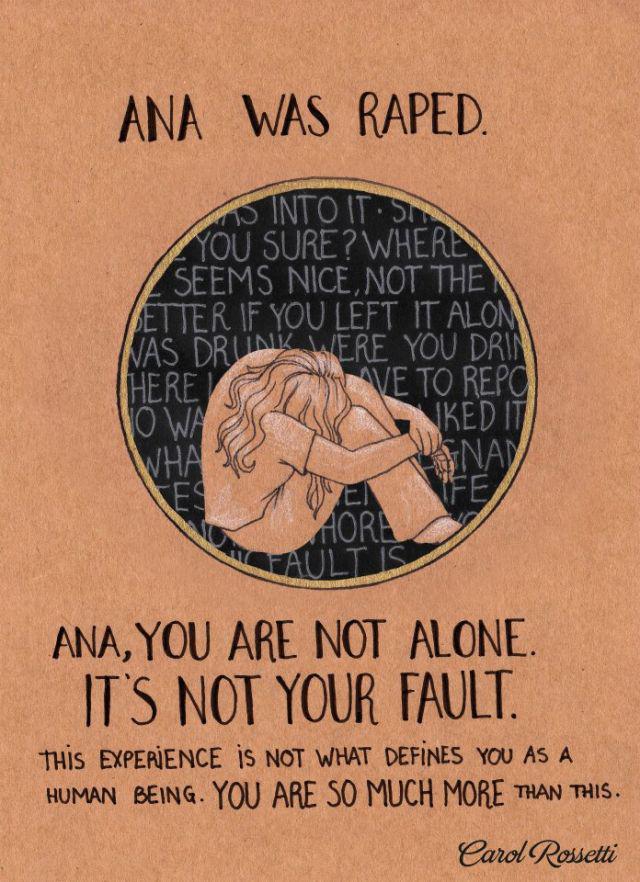 ANA WAS RAPED.
AS INTO IT. SH
YOU SURE? WHERE
SEEMS NICE, NOT THE
BETTER IF YOU LEFT IT ALON
WAS DRUNK WERE YOU DRIN
HERE AVE TO REPO
O WA IKED IT
WHA GNAN
ES IFE
HORE
FAULT IS
ANA, YOU ARE NOT ALONE.
IT'S NOT YOUR FAULT.
THIS EXPERIENCE IS NOT WHAT DEFINES YOU AS A
HUMAN BEING. YOU ARE SO MUCH MORE THAN THIS.
Carol Rossetti